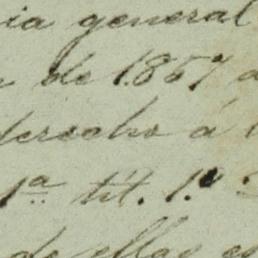 ia general
de 1857
derecho á
1ª tít. 1.º
de ellas es